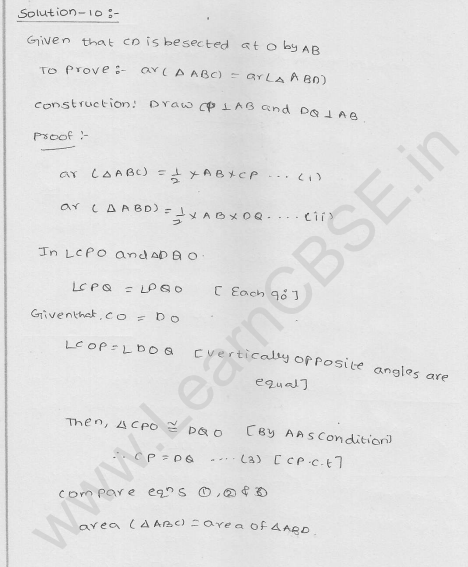 Solution-10 :-
Given that CD is besected at O by AB
To Prove :- ar( △ ABC) = ar(△ ABD)
construction: Draw CP ⊥ AB and DQ ⊥ AB.
Proof :-
ar (△ABC) = 1/2 × AB × CP ... (i)
ar (△ABD) = 1/2 × AB × DQ .... (ii)
In ∠CPO and △DQO.
∠CPQ = ∠PQO [ Each 90°]
Given that, CO = DO
∠COP = ∠DOQ [vertically opposite angles are
equal]
Then, △CPO ≅ DQO [By AAS condition]
∴ CP = DQ .... (3) [CP.C.t]
compare eqns ①, ② & ③
area (△ABC) = area of △ABD.
www.LearnCBSE.in